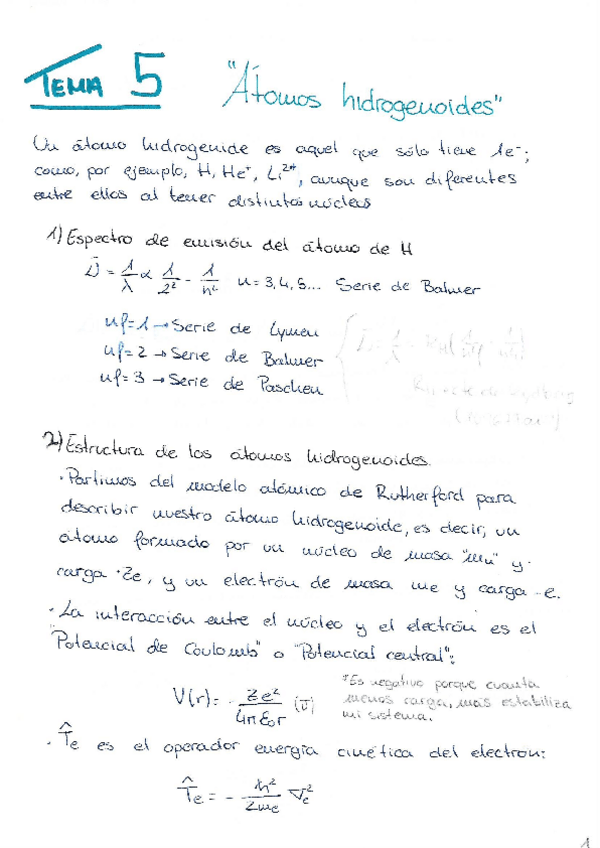 TEMA 5
"Átomos hidrogenoides"
Un átomo hidrogenoide es aquel que sólo tiene 1e⁻;
como, por ejemplo, H, He⁺, Li²⁺, aunque son diferentes
entre ellos al tener distintos núcleos
1) Espectro de emisión del átomo de H
ν̄ = 1/λ ∝ 1/2² - 1/n² n = 3,4,5... Serie de Balmer
nf=1 → Serie de Lymen
nf=2 → Serie de Balmer
nf=3 → Serie de Paschen
2) Estructura de los átomos hidrogenoides.
· Partimos del modelo atómico de Rutherford para
describir nuestro átomo hidrogenoide, es decir, un
átomo formado por un núcleo de masa "mn" y
carga +Ze, y un electrón de masa me y carga -e.
· La interacción entre el núcleo y el electrón es el
"Potencial de Coulomb" o "Potencial central":
V(r) = - Ze²/4πε₀r (J)
*Es negativo porque cuanta
menos carga, más estabiliza
mi sistema.
· T̂e es el operador energía cinética del electron:
T̂e = - ħ²/2me ∇e²
1